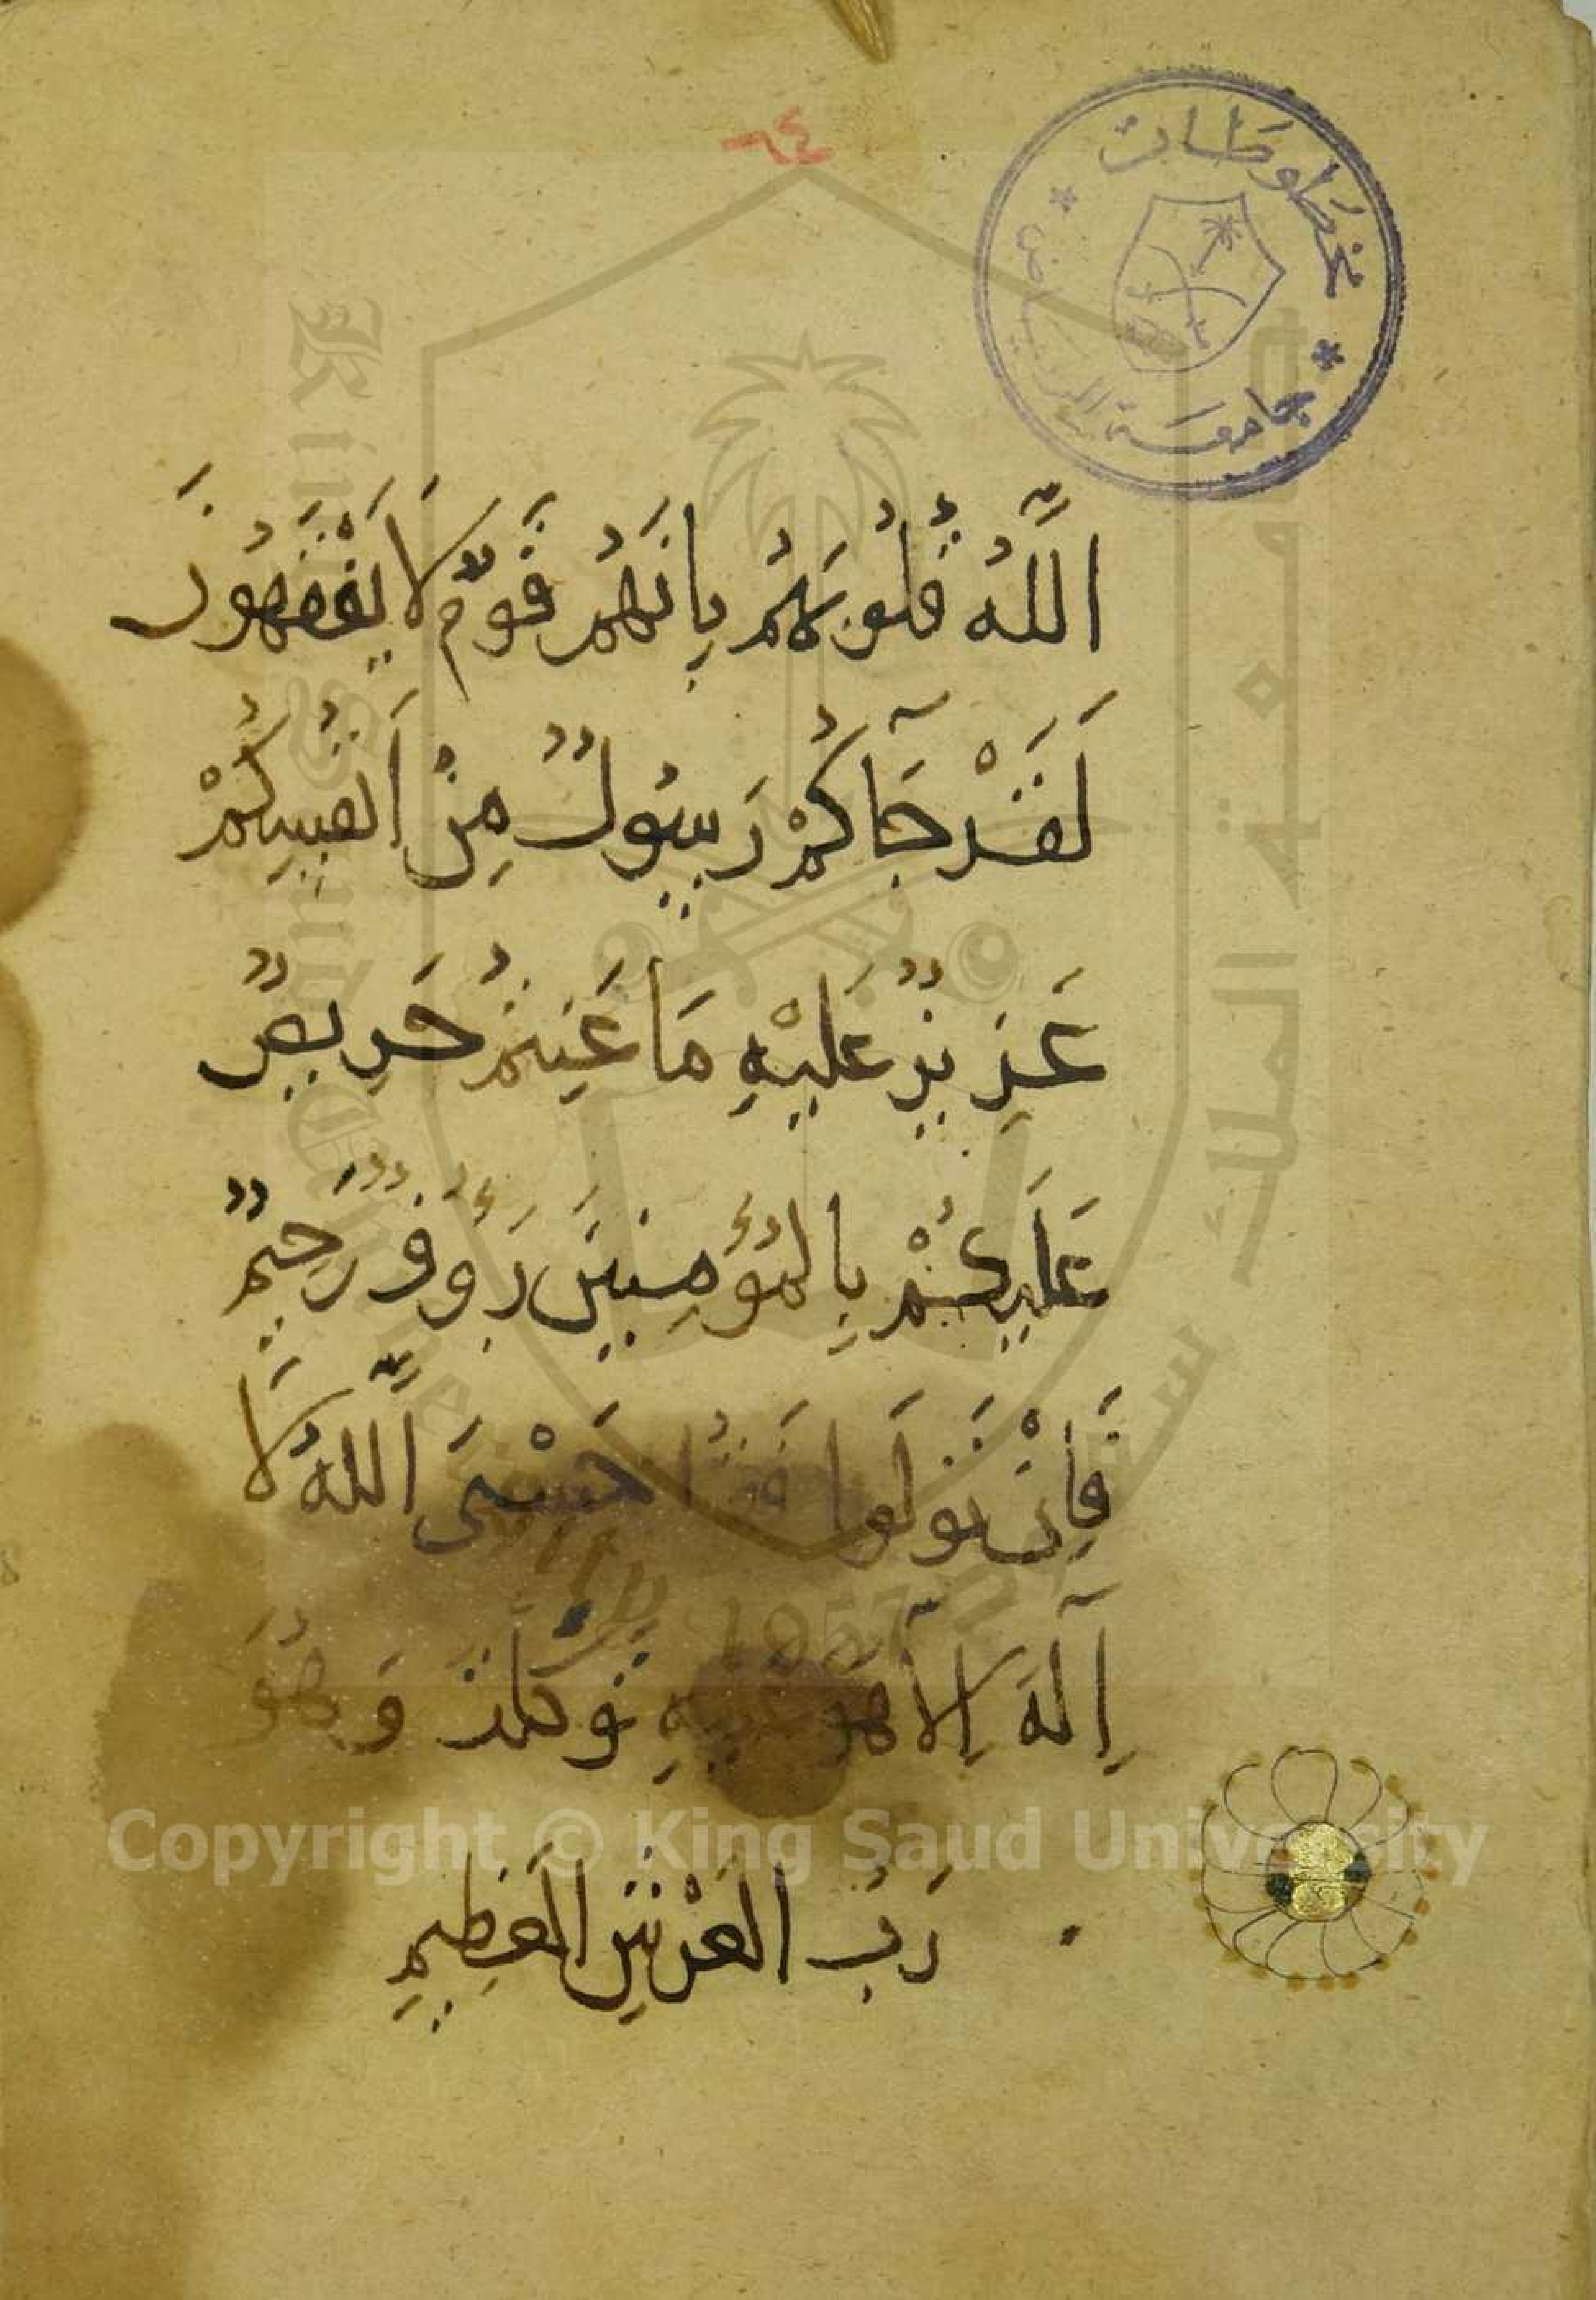 ٦٤
مخطوطات
جامعة الرياض
اللَّهُ قُلُوبَهُمُ بِاَنَّهُم قَومٌ لَا يَفْقَهُونَ
لَقَدْ جَآكُمْ رَسُولٌ مِنْ اَنفُسِكُمْ
عَزِيزٌ عَلَيْهِ مَا عَنِتُم حَرِيصٌ
عَلَيكُمْ بِالمُؤمِنِينَ رَؤُفٌ رَحِيمٌ
فَاِنْ تَوَلَّوا فَقُل حَسْبِىَ اللَّهُ لَا
اِلَهَ اِلَّا هُوَ عَلَيهِ تَوَكَّلتُ وَهُوَ
رَبُّ العَرْشِ العَظِيمِ
Copyright © King Saud University
جامعة الملك سعود
King Saud University
1957